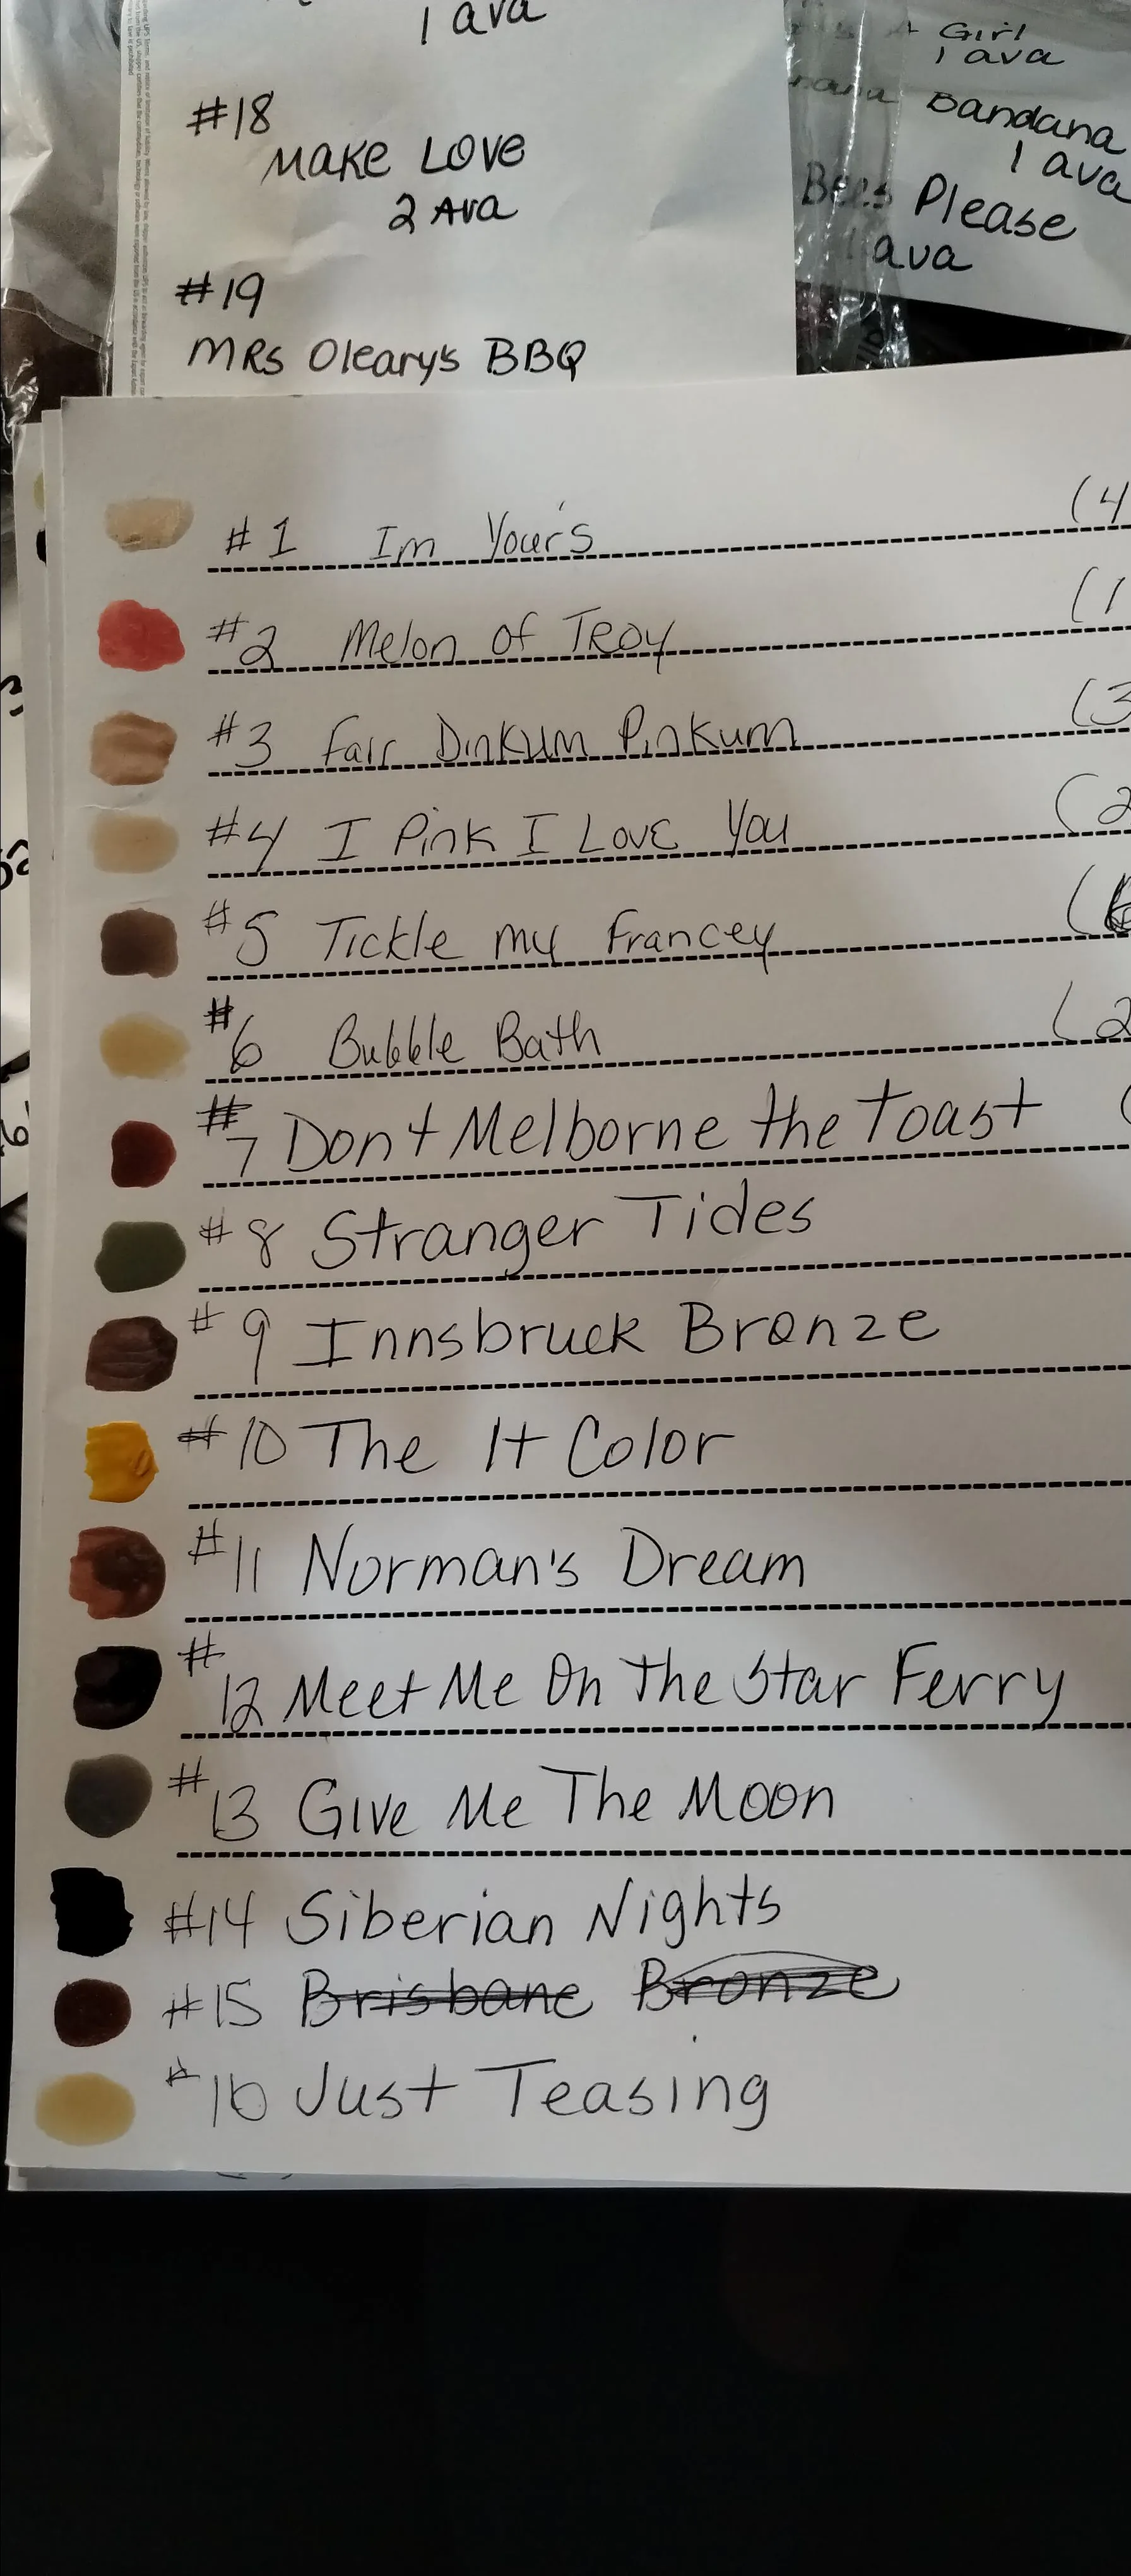 1 ava
#18
MAKE LOVE
2 Ava
#19
MRs Oleary's BBQ
Girl
1 ava
Bandana
1 ava
Bees Please
1 ava
#1 Im Your's (4
#2 Melon of Troy (1
#3 Fair Dinkum Pinkum (3
#4 I Pink I Love You (2
#5 Tickle my Francey (6
#6 Bubble Bath (2
#7 Don't Melborne the toast (
#8 Stranger Tides
#9 Innsbruck Bronze
#10 The It Color
#11 Norman's Dream
#12 Meet Me On The Star Ferry
#13 Give Me The Moon
#14 Siberian Nights
#15 Brisbane Bronze
#16 Just Teasing